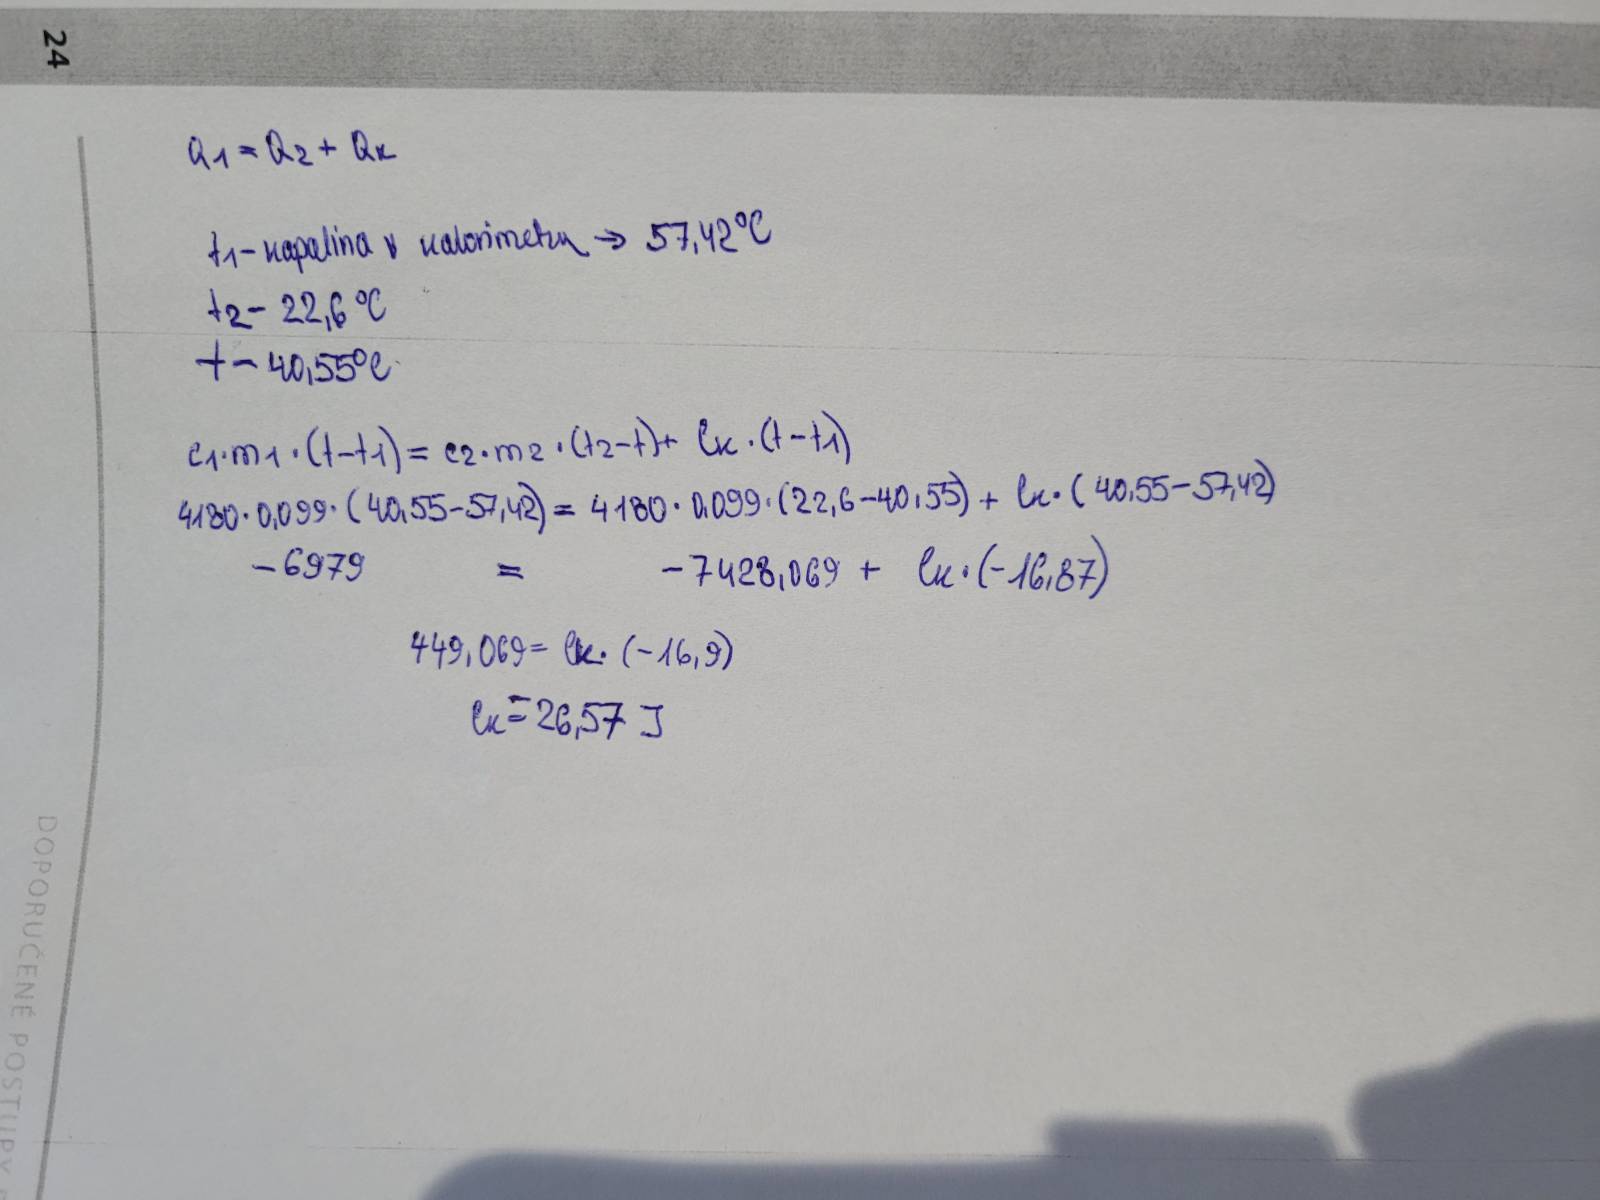 24
Q1 = Q2 + Qk
t1 - kapalina v kalorimetru → 57,42°C
t2 - 22,6°C
t - 40,55°C
c1·m1·(t-t1) = c2·m2·(t2-t) + Ck·(t-t1)
4180·0,099·(40,55-57,42) = 4180·0,099·(22,6-40,55) + Ck·(40,55-57,42)
-6979 = -7428,069 + Ck·(-16,87)
449,069 = Ck·(-16,9)
Ck = -26,57 J
DOPORUČENÉ POSTUPY